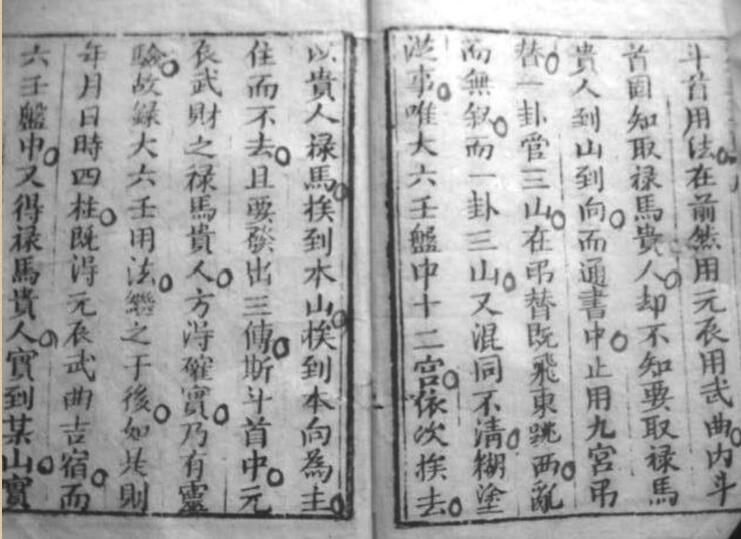 斗首用法在前然用元辰用武曲内斗
首固知取禄馬貴人却不知要取禄馬
貴人到山到向而通書中止用九宮吊
替一卦管三山在吊替既飛東跳西亂
而無叙而一卦三山又混同不淸糊塗
從事唯大六壬盤中十二宮依次挨去
以貴人禄馬挨到本山挨到本向為主
住而不去且要發出三傳斯斗首中元
辰武財之禄馬貴人方得確實乃有靈
驗故録大六壬用法繼之于後如此則
年月日時四柱既得元辰武曲吉宿而
六壬盤中又得禄馬貴人實到某山實